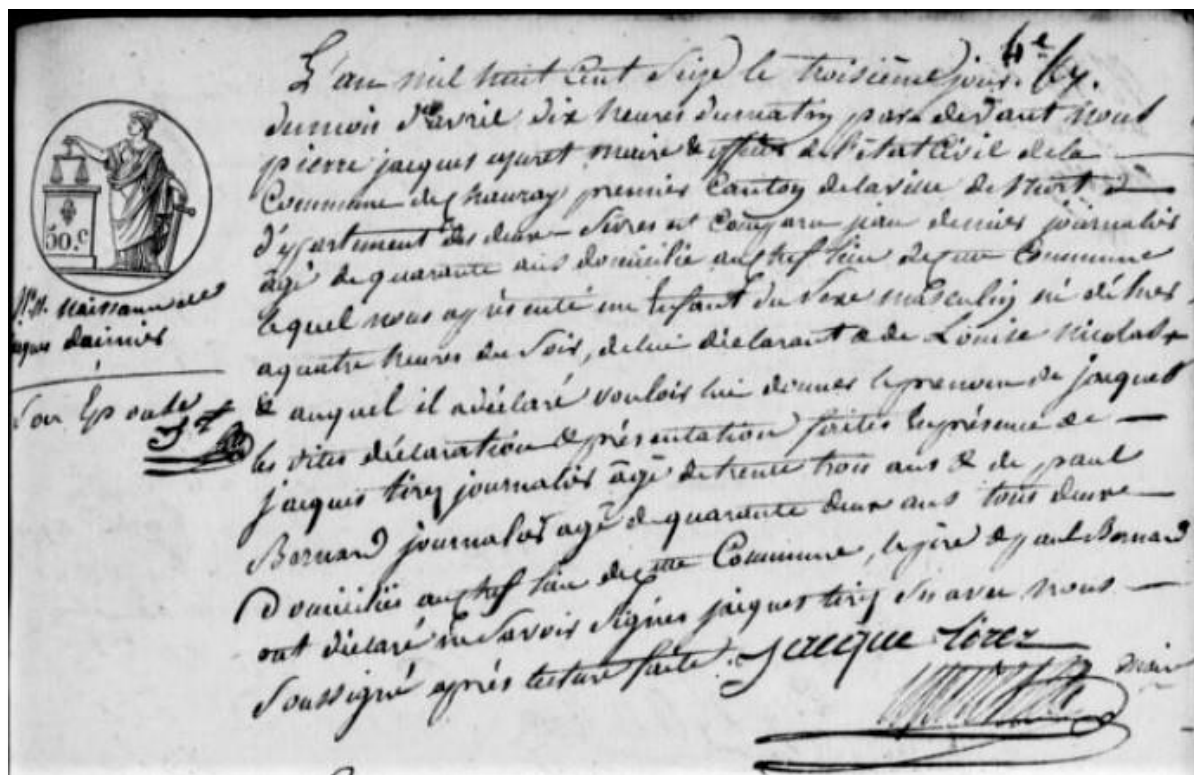 4e f.
L'an mil huit cent Seize le troisième jour
du mois d'avril dix heures du matin par devant nous
pierre jacques maire & officier de l'état Civil de la
Commune de Chauray premier Canton de la ville de Niort
département des deux-Sèvres est comparu jean demier journalier
âgé de quarante ans domicilié au chef lieu de cette Commune
lequel nous a présenté un Enfant du Sexe masculin né
a quatre heures du Soir, de lui déclarant & de Louise Nicolas +
& auquel il a déclaré vouloir lui donner le prenom de jacques
les dites déclaration & présentation faites En présence de
jacques tirez journalier âgé de trente trois ans & de paul
Bernard journalier agé de quarante deux ans tous deux
Domiciliés au chef lieu de cette Commune, le père & paul Bernard
ont déclaré ne Savoir Signer jacques tirez Sn avec nous
Soussigné après lecture faite.
Jacque tirez
maire
50.c
Naissance de
jacques dainier
+ Son Epouse